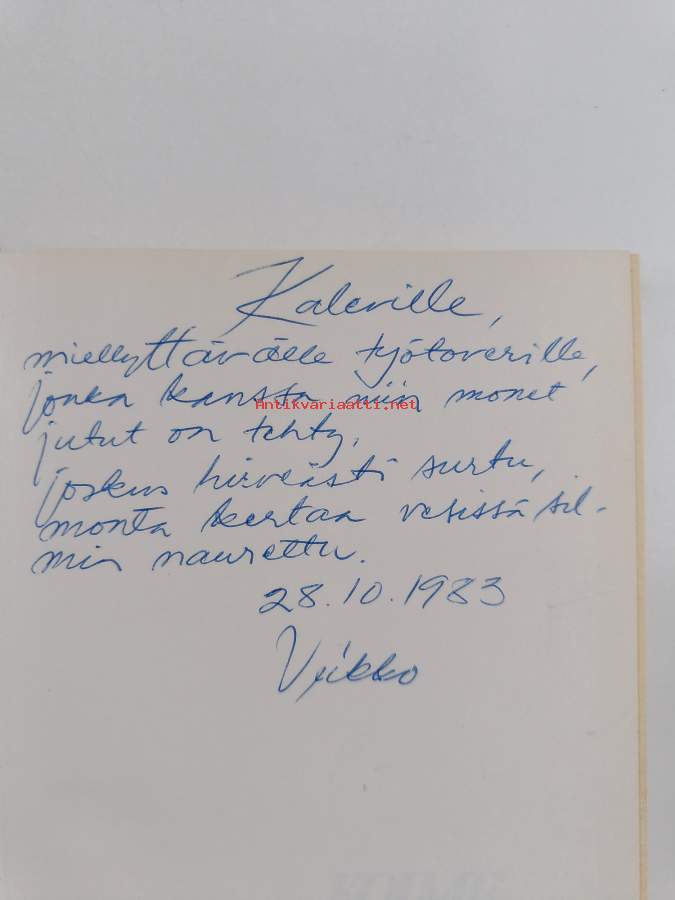 Kaleville,
miellyttävälle työtoverille,
jonka kanssa niin monet
Antikvariaatti.net
jutut on tehty,
joskus hirveästi surtu,
monta kertaa vesissä sil-
min naurettu.
28.10.1983
Veikko